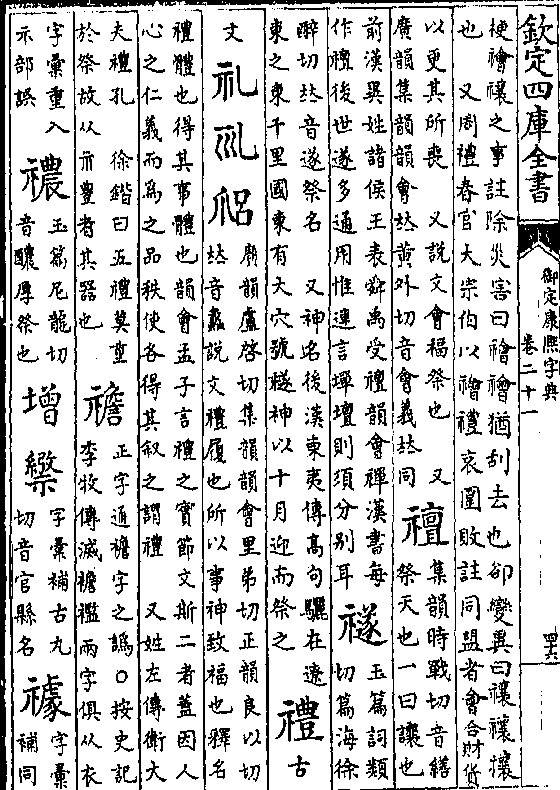 欽定四庫全書
御定康熙字典
卷二十一
四六
梗禬禳之事註除災害曰禬禬猶刮去也卻變異曰禳禳攘
也 又周禮春官大宗伯以禬禮哀圍敗註同盟者會合財貨
以更其所喪 又說文會福祭也 又
廣韻集韻韻會𠀤黃外切音會義𠀤同
䄠 集韻時戰切音繕
祭天也一曰讓也
前漢異姓諸侯王表舜禹受䄠韻會禪漢書每
作䄠後世遂多通用惟連言墠壇則須分別耳
禭 玉篇詞類
切篇海徐
醉切𠀤音遂祭名 又神名後漢東夷傳高句驪在遼
東之東千里國東有大穴號禭神以十月迎而祭之
禮 古
文 礼 廣韻盧啓切集韻韻會里弟切正韻良以切
𠀤音蠡說文禮履也所以事神致福也釋名
禮體也得其事體也韻會孟子言禮之實節文斯二者蓋因人
心之仁義而爲之品秩使各得其敘之謂禮 又姓左傳衞大
夫禮孔 徐鍇曰五禮莫重
於祭故从示豐者其器也
襜 正字通襜字之譌○按史記
李牧傳滅襜襤兩字俱从衣
字彙重入
示部誤
禯 玉篇尼龍切
音醲厚祭也
增 字彙補古丸
切音官縣名
字彙
補同